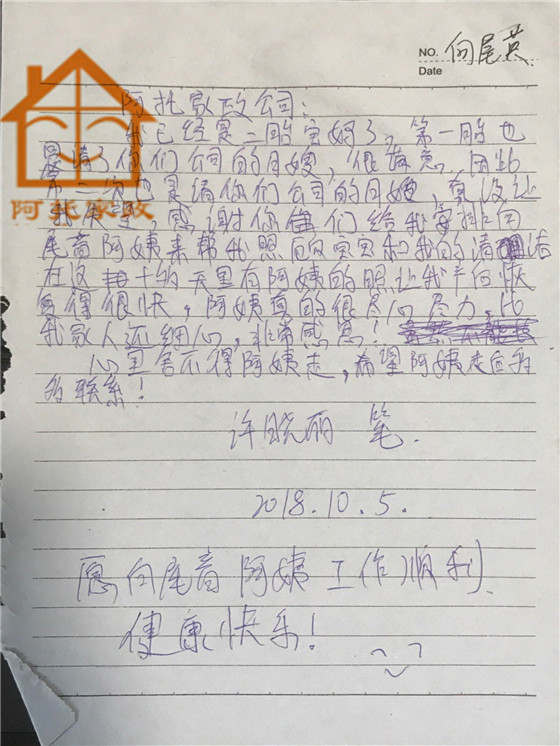 NO. 向尾英
Date
阿托家政公司:
我已经是二胎宝妈了,第一胎也
是请了你们公司的月嫂,很满意,因此
第二次也是请你们公司的月嫂,真没让
我失望,感谢你们给我安排向
尾音阿姨来帮我照顾宝宝和我的清洁
在这十的天里有阿姨的照让我产后恢
复得很快,阿姨真的很尽心尽力,比
我家人还细心,非常感恩!
心里舍不得阿姨走,希望阿姨走后多
多联系!
许晓丽 笔.
2018.10.5.
愿向尾音阿姨工作顺利
健康快乐!
阿托家政